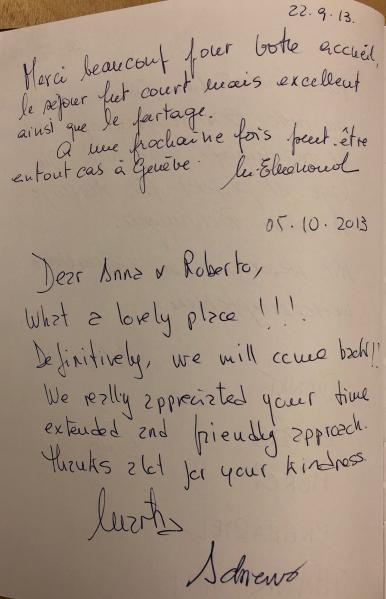 22.9.13.
Merci beaucoup pour votre accueil,
le séjour fut court mais excellent
ainsi que le partage.
A une prochaine fois peut-être
en tout cas à Genève.
05.10.2013
Dear Anna & Roberto,
What a lovely place !!!
Definitively, we will come back!!
We really appreciated your time
extended and friendly approach.
Thanks alot for your kindness